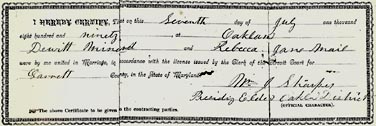 I HEREBY CERTIFY, That on this Seventh day of July one thousand
eight hundred and ninety at Oakland
Dewitt and Rebecca Jane Mail
were by me united in Marriage, in accordance with the license issued by the Clerk of the Court for
Garrett County, in the State of Maryland.
Wm J Sharpes
Presiding Elder Oakland District
(OFFICIAL CHARACTER.)
The above Certificate to be given to the contracting parties.